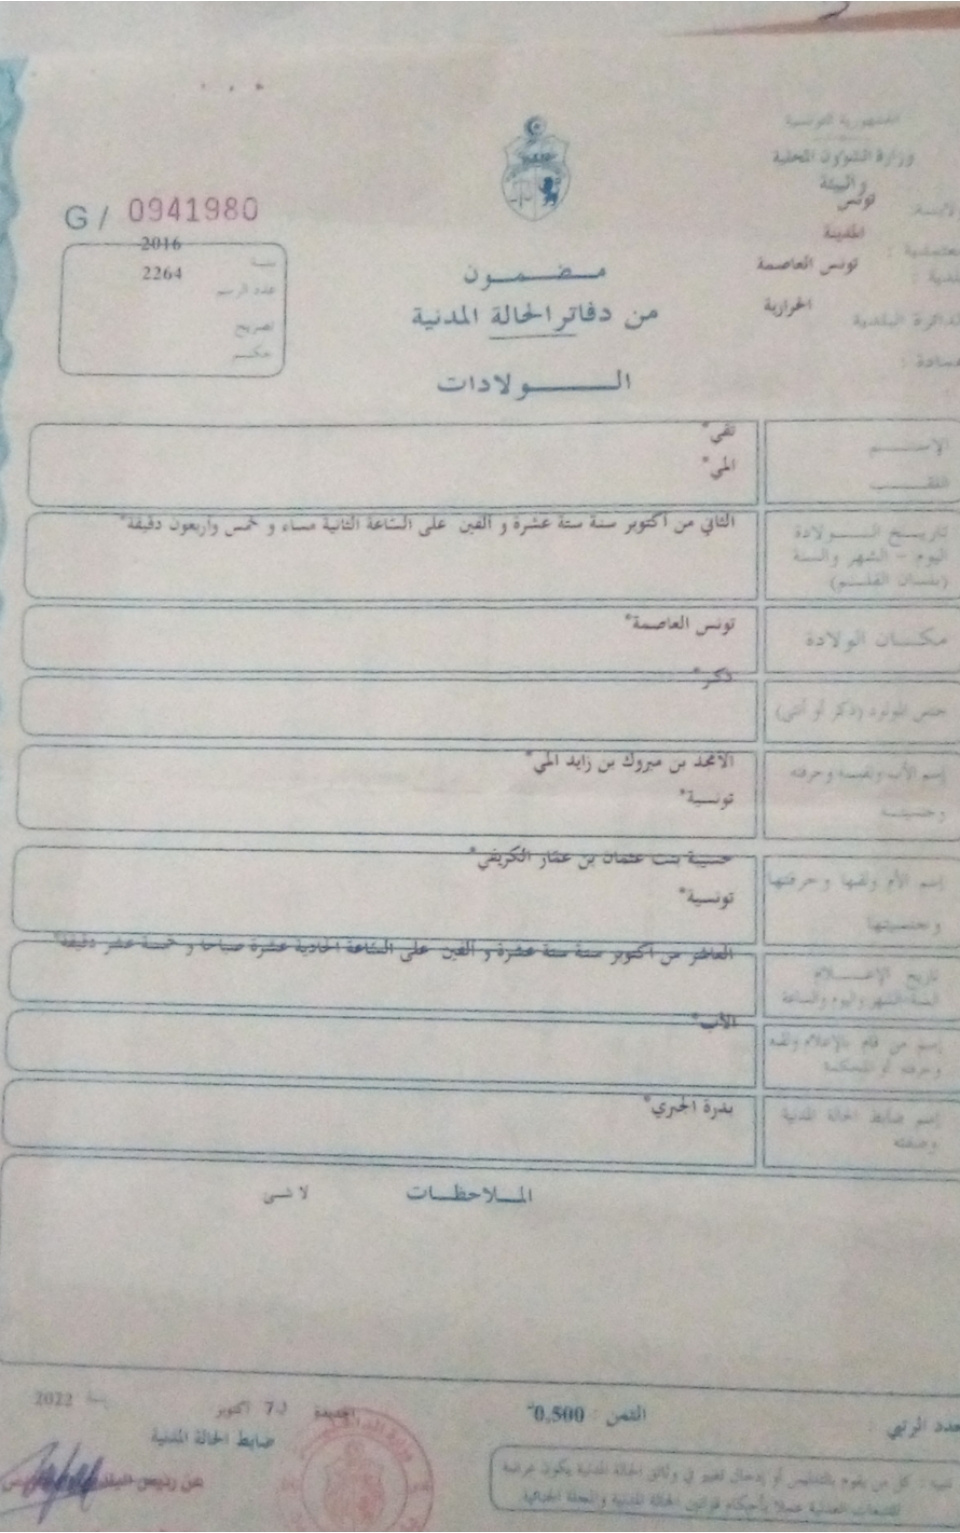 الجمهورية التونسية
وزارة الشؤون المحلية
والبيئة
ولاية: تونس
معتمدية: المدينة
بلدية: تونس العاصمة
الدائرة البلدية الخرارية
عمادة:
G / 0941980
سنة 2016
عدد الرسم 2264
تصريح
حكم
مضمون
من دفاتر الحالة المدنية
الولادات
الإسم تقي*
اللقب المي*
تاريخ الولادة
اليوم - الشهر والسنة
(بلسان القلم)
الثاني من أكتوبر سنة ستة عشرة و ألفين على الساعة الثانية مساء و خمس وأربعون دقيقة*
مكان الولادة تونس العاصمة*
جنس المولود (ذكر أو أنثى) ذكر*
إسم الأب ولقبه وحرفته الامجد بن مبروك بن زايد المي*
وجنسيته تونسية*
إسم الأم ولقبها وحرفتها حسيبة بنت عثمان بن عمار الكريفي*
وجنسيتها تونسية*
تاريخ الإعلام
السنة والشهر واليوم والساعة
العاشر من أكتوبر سنة ستة عشرة و ألفين على الساعة الحادية عشرة صباحا و خمسة عشر دقيقة*
إسم من قام بالإعلام ولقبه
وحرفته أو المحكمة
الأب*
إسم ضابط الحالة المدنية
وصفته
بدرة الجبري*
الملاحظات لا شئ
عدد الرتبي :
الثمن : 0,500
في 7 أكتوبر سنة 2022
ضابط الحالة المدنية
عن رئيس
تنبيه : كل من يقوم بالتدليس أو إدخال تغيير في وثائق الحالة المدنية يكون عرضة
للتتبعات العدلية عملا بأحكام قوانين الحالة المدنية والمجلة الجنائية